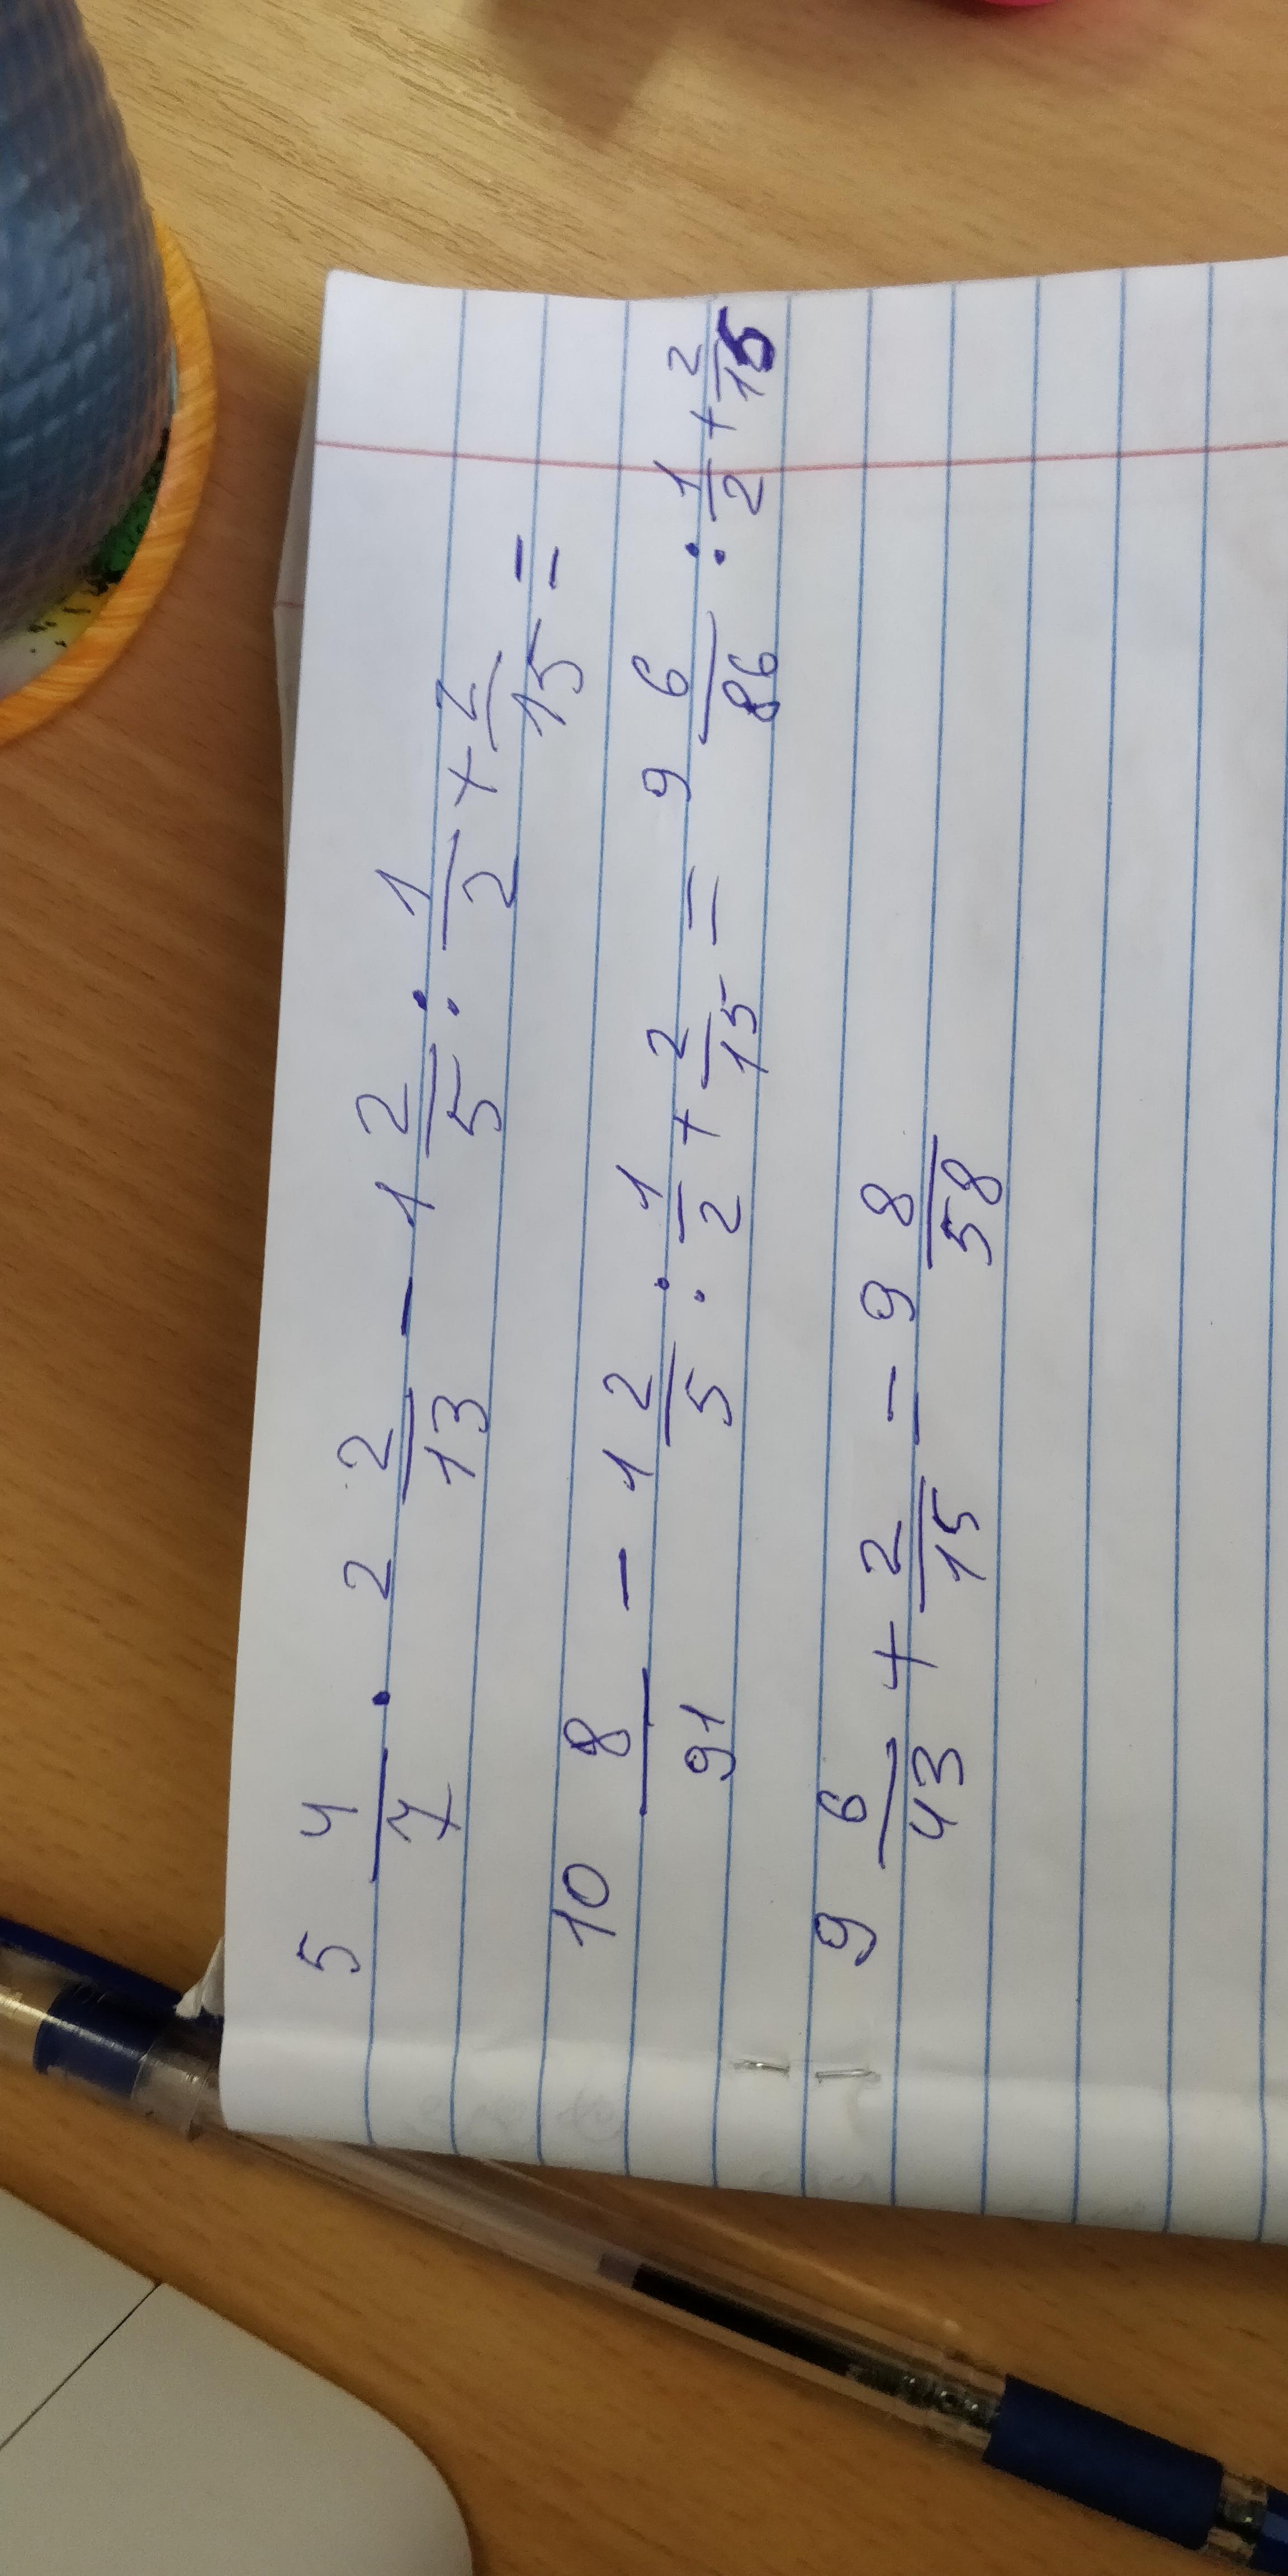 5 4/7 · 2 2/13 - 1 2/5 : 1/2 + 2/15 =
10 8/91 - 1 2/5 : 1/2 + 2/15 = 9 6/86 : 1/2 + 2/15
9 6/43 + 2/15 = 9 8/58